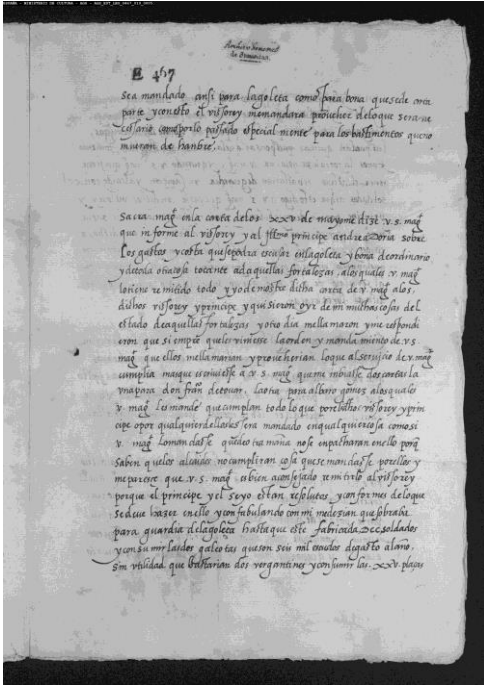 ESPAÑA - MINISTERIO DE CULTURA - AGS
Archivo General
de Simancas
E 457
sea mandado ansi para la goleta como para bona que se de orden
parte y con esto el vissorey me mandara proveher de lo que sera ne
cessario, como por lo passado especialmente para los bastimentos que no
mueran de hanbre.
Sacra mag. en la carta de los xxv de mayo me dize v. s. mag.
que informe al vissorey y al Illmo principe andrea doria sobre
los gastos y costa que se podra escusar en la goleta y bona de ordinario
y de toda otra cosa tocante ad aquellas fortalezas, a los quales v. mag.
lo tiene remitido todo y yo demostre ditha carta de v. mag. a los
dichos vissorey y principe y quisieron oyr de mi muchas cosas del
estado de aquellas fortalezas y otro dia me llamaron y me respondi
eron que siempre que les viniesse la orden y mandamiento de v. s.
mag. que ellos me llamarian y proveherian lo que al servicio de v. mag.
cumplia mas que escriviesse a v. s. mag. que me inbiasse dos cartas la
una para don fran. de tovar, la otra para albaro gomez a los quales
v. mag. les mande que cumplan todo lo que por los dichos vissorey y prin
cipe o por qualquier dellos les sera mandado en qualquier cosa como si
v. mag. lo mandasse que de otra mana no se enpacharan en ello porq
saben que los alcaides no cumpliran cosa que se mandasse por ellos y
me paresce que v. s. mag. es bien aconsejado remitirlo al vissorey
porque el principe y el seyo estan resolutos y conformes de lo que
se deve hazer en ello y confabulando con mi me dezian que sobraba
para guardia de la goleta hasta que este fabricada Dcc soldados
y consumir las dos galeotas que son seis mil escudos de gasto al año.
sin utilidad que bastarian dos vergantines y consumir las xxv plaças